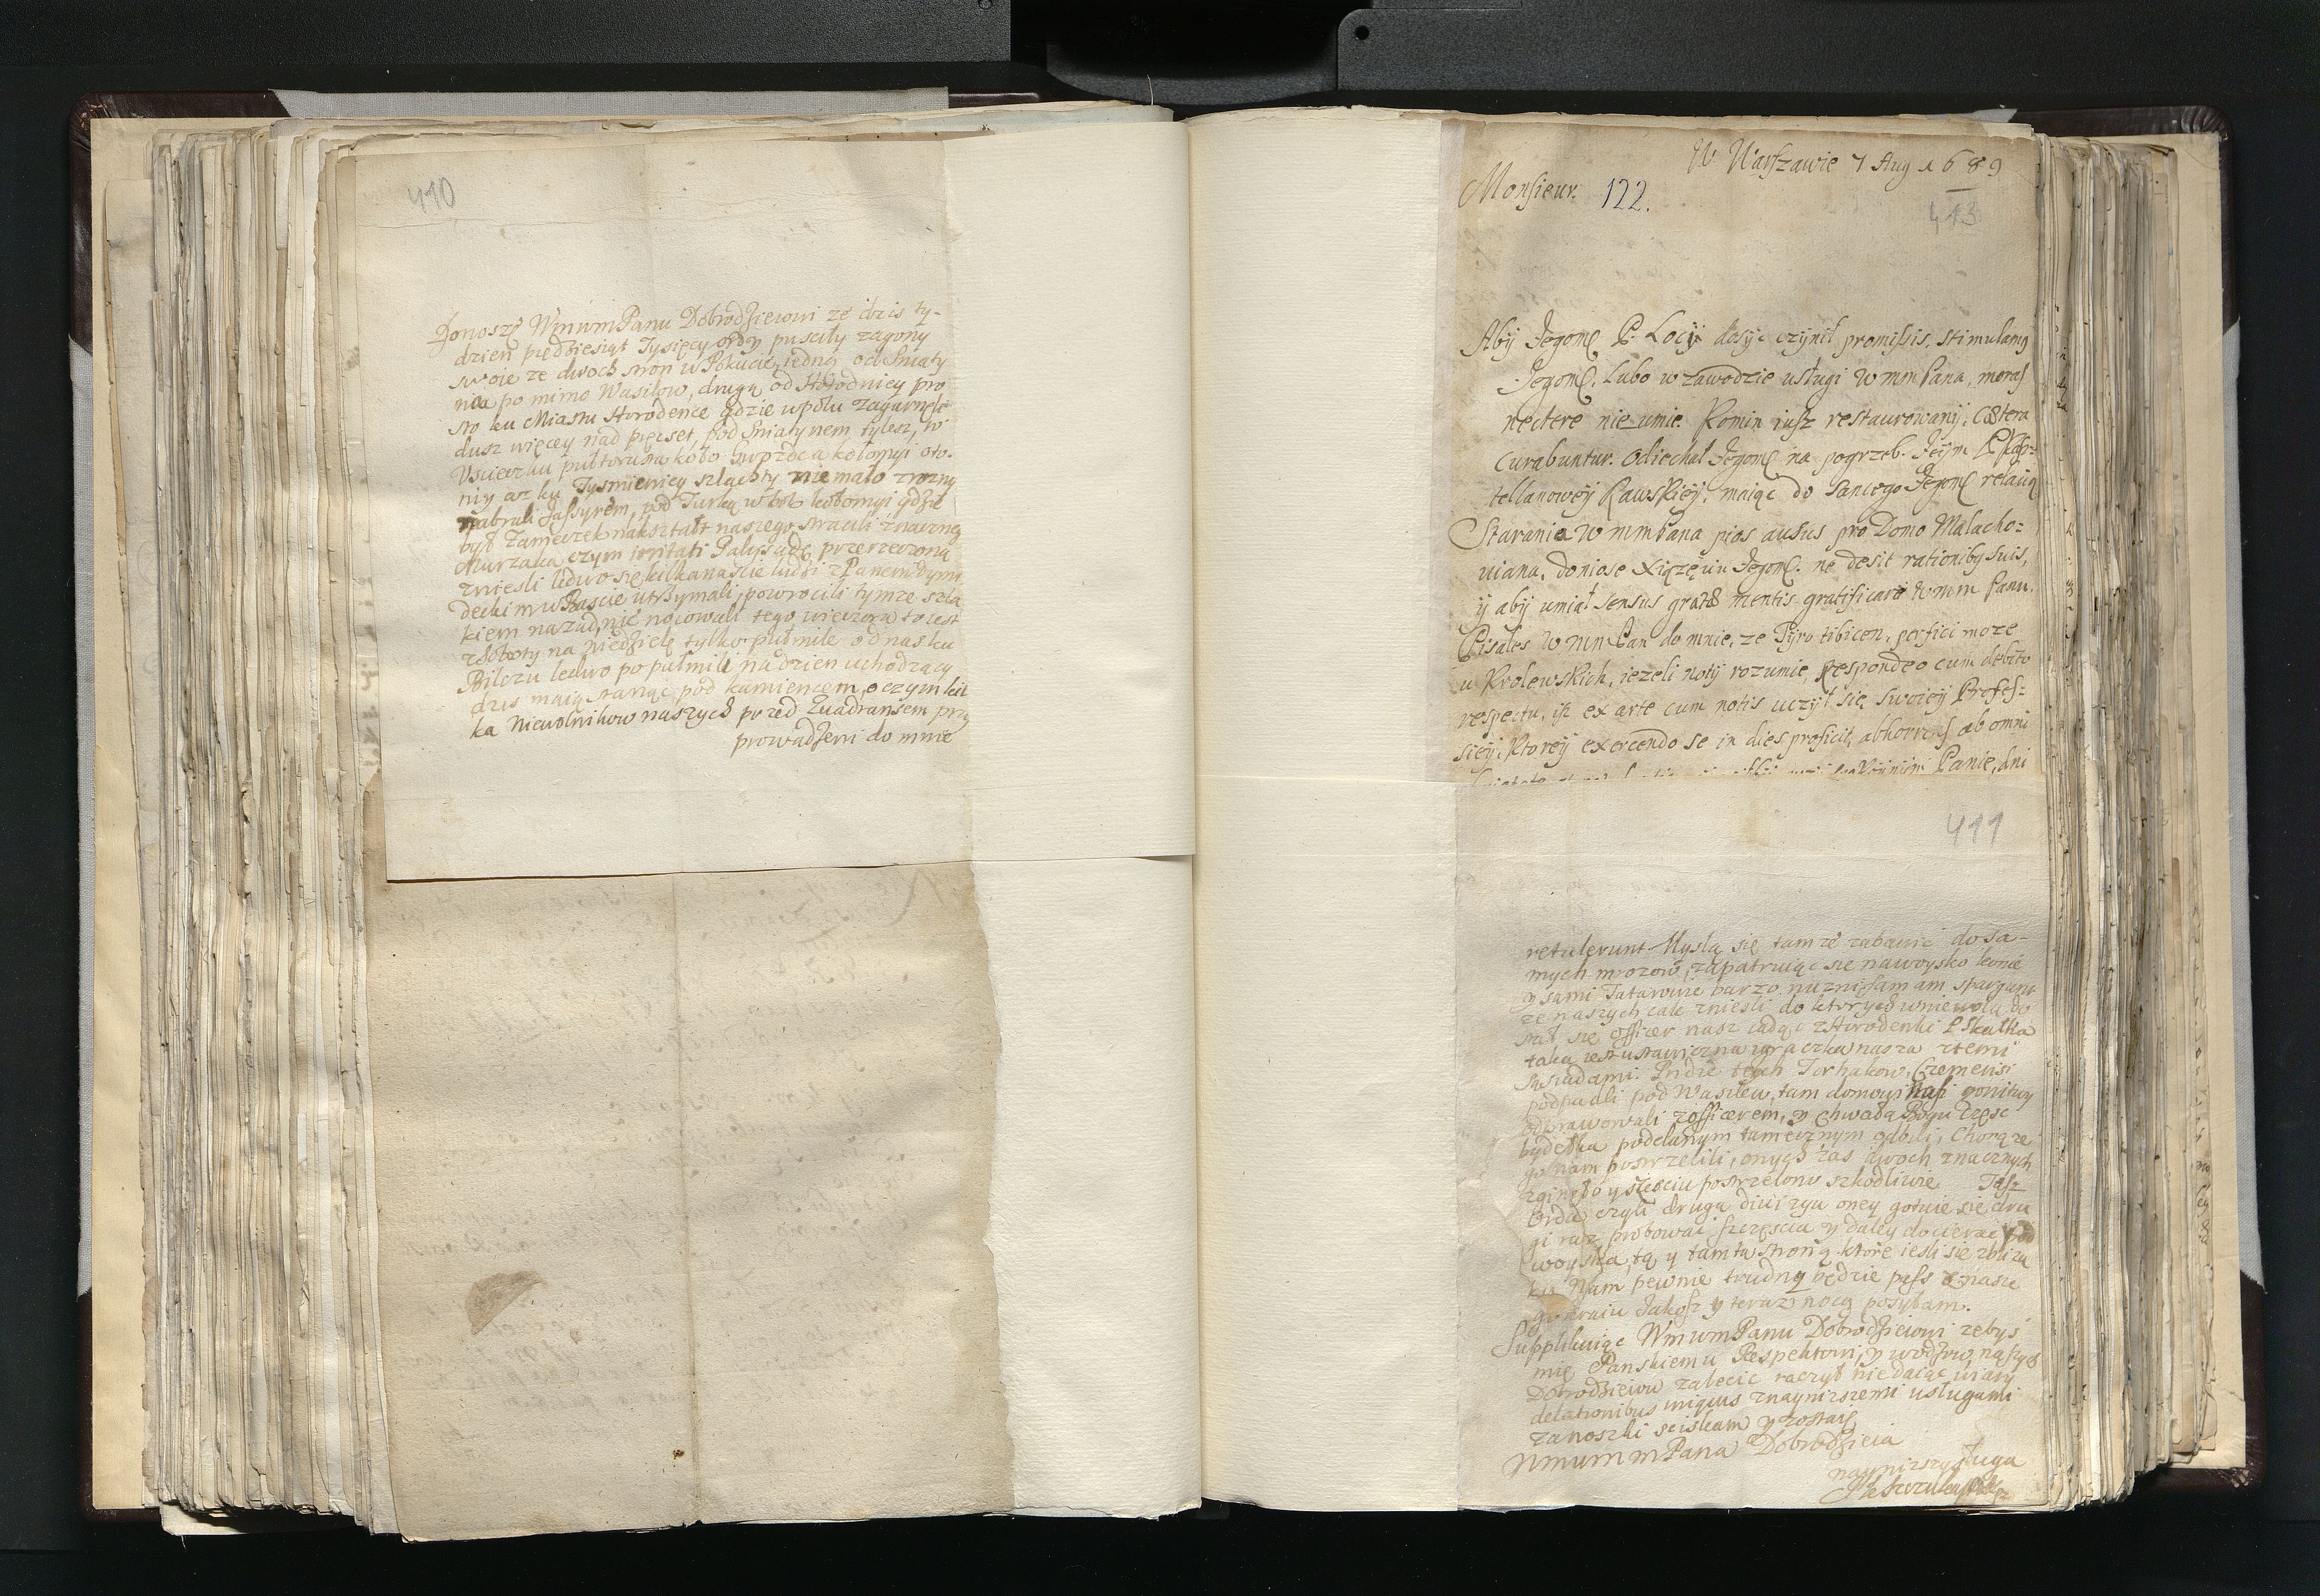 410
Donoszę WmumPanu Dobrodzieiowi ze dzis ty-
dzien pięćdziesiąt Tysięcy ordy pusciły zagony
swoie ze dwoch stron w Pokucie, iedną od Sniaty
na po mimo Wasilow, drugą od Horodnicy pro
sto ku Miastu Horodence gdzie w polu zagarneli
dusz więcey nad pięcset, pod Sniatynem tylesz, w
Uscieczku pułtorasta koło Gwozdca Kołomyi oto-
niy az ku Tysmienicy szlachty nie mało
nabrali Jassyrem, pod Turką w bok kołomyi gdzie
był Zameczek nakształt naszego stracili znacznego
Murzaka czym irritati Palissadę przerzeczoną
zniesli ledwo się kilkanascie ludzi z Panem
deckim w Bascie utrzymali, powrocili tymze szla
kiem nazad, nie nocowali tego wieczora to iest
z Soboty na niedzielę tylko pułmile od nas ku
Bilczu ledwo po pułmili na dzien uchodzący
dzis maią stanąc pod kamiencem, o czym kil
ka Niewolnikow naszych przed Quadransem przy
prowadzeni do mnie
W Warszawie 7 Aug 1689
Monsieur. 122.
413
Aby Jegomć P. Locij dosyc czynił promissis, stimulamy
Jegomć. Lubo w zawodzie usługi WmmPana, moras
nectere nie umie. Komin iusz restaurowany, Cætera
curabuntur. Odiechał Jegomć na pogrzeb Jeym P. Kasz-
tellanowey Rawskiey, maiąc do Sancego Jegomć relacią
Starania WmmPana pios ausus pro Domo Malacho-
viana, doniose Xiązęciu Jegomć. ne desit rationibus suis,
y aby umiał sensus gratæ mentis gratificare Wmm Panu.
Pisałes WmmPan do mnie, ze Tyro tibicen, perfici moze
u Krolewskich, iezeli noty rozumie, Respondeo cum debito
respectu, isz ex arte cum notis uczył się swoiey Profes-
siey, Ktorey exercendo se in dies proficit, abhorrens ab omni
Panie, dni
411
retulerunt. Myslą się tamze zabawic do sa-
mych mrozow, zapatruiąc sie na woysko
y sami Tatarowie barzo nuzni famam spargunt
ze naszych cale zniesli do ktorych w niewolą do
stał się officer nasz iadąc z Horodenki P Skałka
taka iest ustawiczna igraczka nasza z temi
Sąsiadami. Pridie tych Torhakow, Czemensi
podpadli pod Wasilew, tam domowi nasi gonitwy
odprawowali z officerem, y chwała Bogu częsc
bydełka poddanym tamecznym odbili, Chorąze
go nam postrzelili, onych zas dwoch znacznych
zginęło y szesciu postrzelono szkodliwie Tasz
Orda czyli druga diviziya oney gotuie się dru
gi raz probowac szczęscia y daley docierac pod
woyska, tą y tamtą stroną ktore iesli sie zblizą
ku Nam pewnie trudny będzie pass z nasze
go kraiu Jakosz y teraz nocą posyłam.
Supplikuiąc WmumPanu Dobrodzieiowi zebys
mię Panskiemu Respektowi, y wodzow naszych
Dobrodzieiow zalecic raczył nie daiąc wiary
delationibus iniquis z nayniszszemi usługami
zanoszki sciskam y zostaię
WmummPana Dobrodzieia
nayniszszy sługa